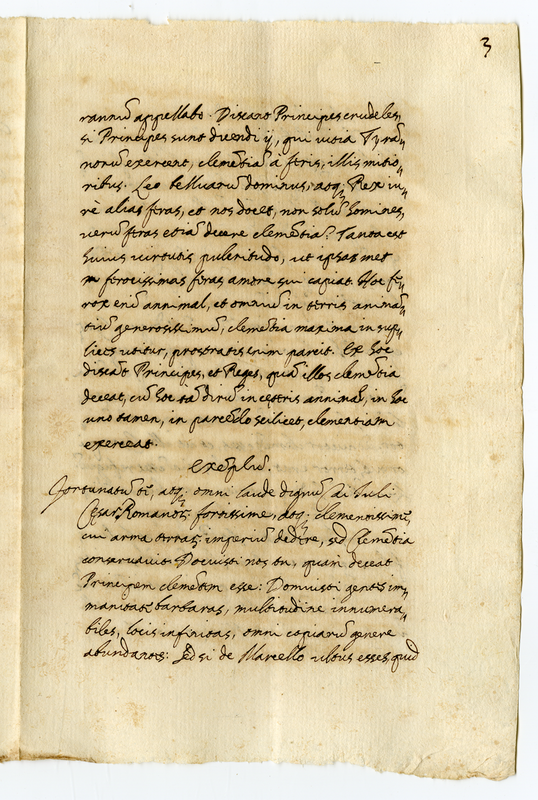 3
rannũ appellabo. Discant Principes crudeles,
si Principes sunt dicendi ij, qui vitia Tyrã„
norũ exercent, clemẽtiã a feris, illis mitio„
ribus. Leo belluarũ dominus, atq; Rex in„
rè alias feras, et nos docet, non solũ homines,
verũ feras etiã decere clemẽtiã? Tanta est
huius virtutis pulcritudo, ut ipsas met
ferocissimas feras amore sui capiat. Hoc fe„
rox enĩ annimal, et omniũ in terris animã„
tiũ generosissimũ, clemẽtia maxima in sup„
lices utitur, prostratis enim parcit. Ex hoc
discãt Principes, et Reges, quã illos clemẽtia
deceat, cũ hoc tã dirũ in cęteris annimal, in hoc
uno tamen, in parcẽdo scilicet, clementiam
exerceat.
Exẽplũ.
Fortunatũ tẽ, atq; omni laude dignũ Cai Iuli
Cęsar Romanor. fortissime, atq; clementissimẽ,
cui arma terras, imperiũ dedere, sed Clemẽtia
conservavit. Docuisti nos tu, quam deceat
Principem clemẽtem esse: Domuisti gentes im„
manitate barbaras, multitudine innumera„
biles, locis infinitas, omni copiarũ genere
abundantes: Sed si de Marcello ultus esses, quid